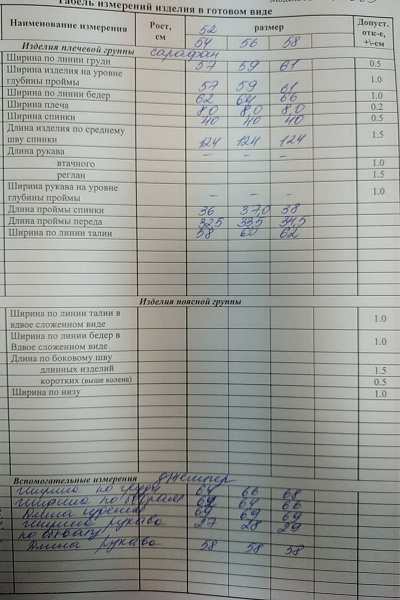 Табель измерений изделия в готовом виде
Наименование измерения Рост, см размер Допуст. отк-е, +\-см
52
54 56 58
Изделия плечевой группы сарафан
Ширина по линии груди 57 59 61 0.5
Ширина изделия на уровне
глубины проймы 57 59 61 1.0
Ширина по линии бедер 62 64 66 1.0
Ширина плеча 8,0 8,0 8,0 0.2
Ширина спинки 40 40 40 0.5
Длина изделия по среднему
шву спинки 124 124 124 1.5
Длина рукава – – –
втачного 1.0
реглан 1.5
Ширина рукава на уровне
глубины проймы – – – 1.0
Длина проймы спинки 36 37,0 38
Длина проймы переда 32,5 33,5 34,5
Ширина по линии талии 58 60 62
Изделия поясной группы
Ширина по линии талии в
вдвое сложенном виде 1.0
Ширина по линии бедер в
Вдвое сложенном виде 1.0
Длина по боковому шву
длинных изделий 1.5
коротких (выше колена) 0.5
Ширина по низу 1.0
Вспомогательные измерения джемпер
Ширина по груди 64 66 68
Ширина по 64 66
Длина 69 69 69
Ширина рукава 27 28 29
по охвату
Длина рукава 58 58 58